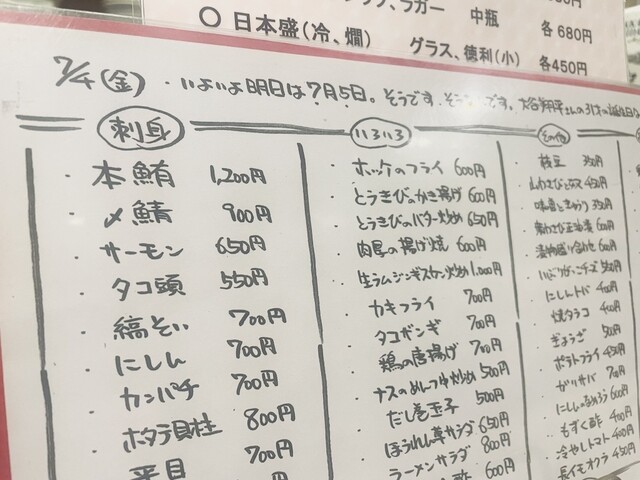 ラガー 中瓶 各680円
○ 日本盛(冷、燗) グラス、徳利(小) 各450円
7/4(金) ・いよいよ明日は7月5日。そうです。そうです。大谷翔平さんの31才の誕生日
刺身
・本鮪 1,200円
・〆鯖 900円
・サーモン 650円
・タコ頭 550円
・縞そい 700円
・にしん 700円
・カンパチ 700円
・ホタテ貝柱 800円
・平目 700円
いろいろ
・ホッケのフライ 600円
・とうきびのかき揚げ 600円
・とうきびのバター炒め 650円
・肉厚の揚げ焼 600円
・生ラムジンギスカン炒め 1,000円
・カキフライ 700円
・タコザンギ 700円
・鶏の唐揚げ 700円
・ナスのめんつゆ炒め 500円
・だし巻玉子 500円
・ほうれん草サラダ 650円
・ラーメンサラダ 800円
酢 600円
その他
・枝豆 350円
・山わさびックス 450円
・味噌ときゅうり 350円
・山わさび正油漬 600円
・漬物盛り合わせ 600円
チーズ 500円
・にしんトバ 400円
・焼タラコ 400円
・ぎょうざ 500円
・ポテトフライ 450円
・ガリサバ 700円
・にしんのなめろう 600円
・もずく酢 400円
・冷やしトマト 400円
・長イモオクラ 450円